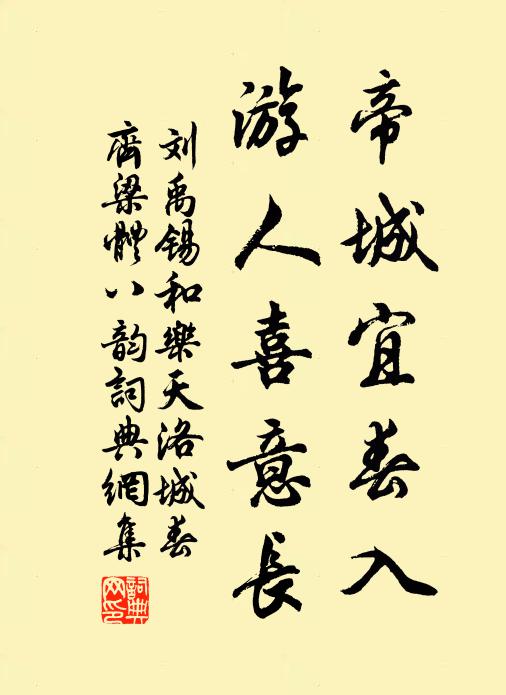 帝城宜春入
游人喜意長
刘禹锡和樂天洛城春
齊梁體八韵詞典網集
詞典网印